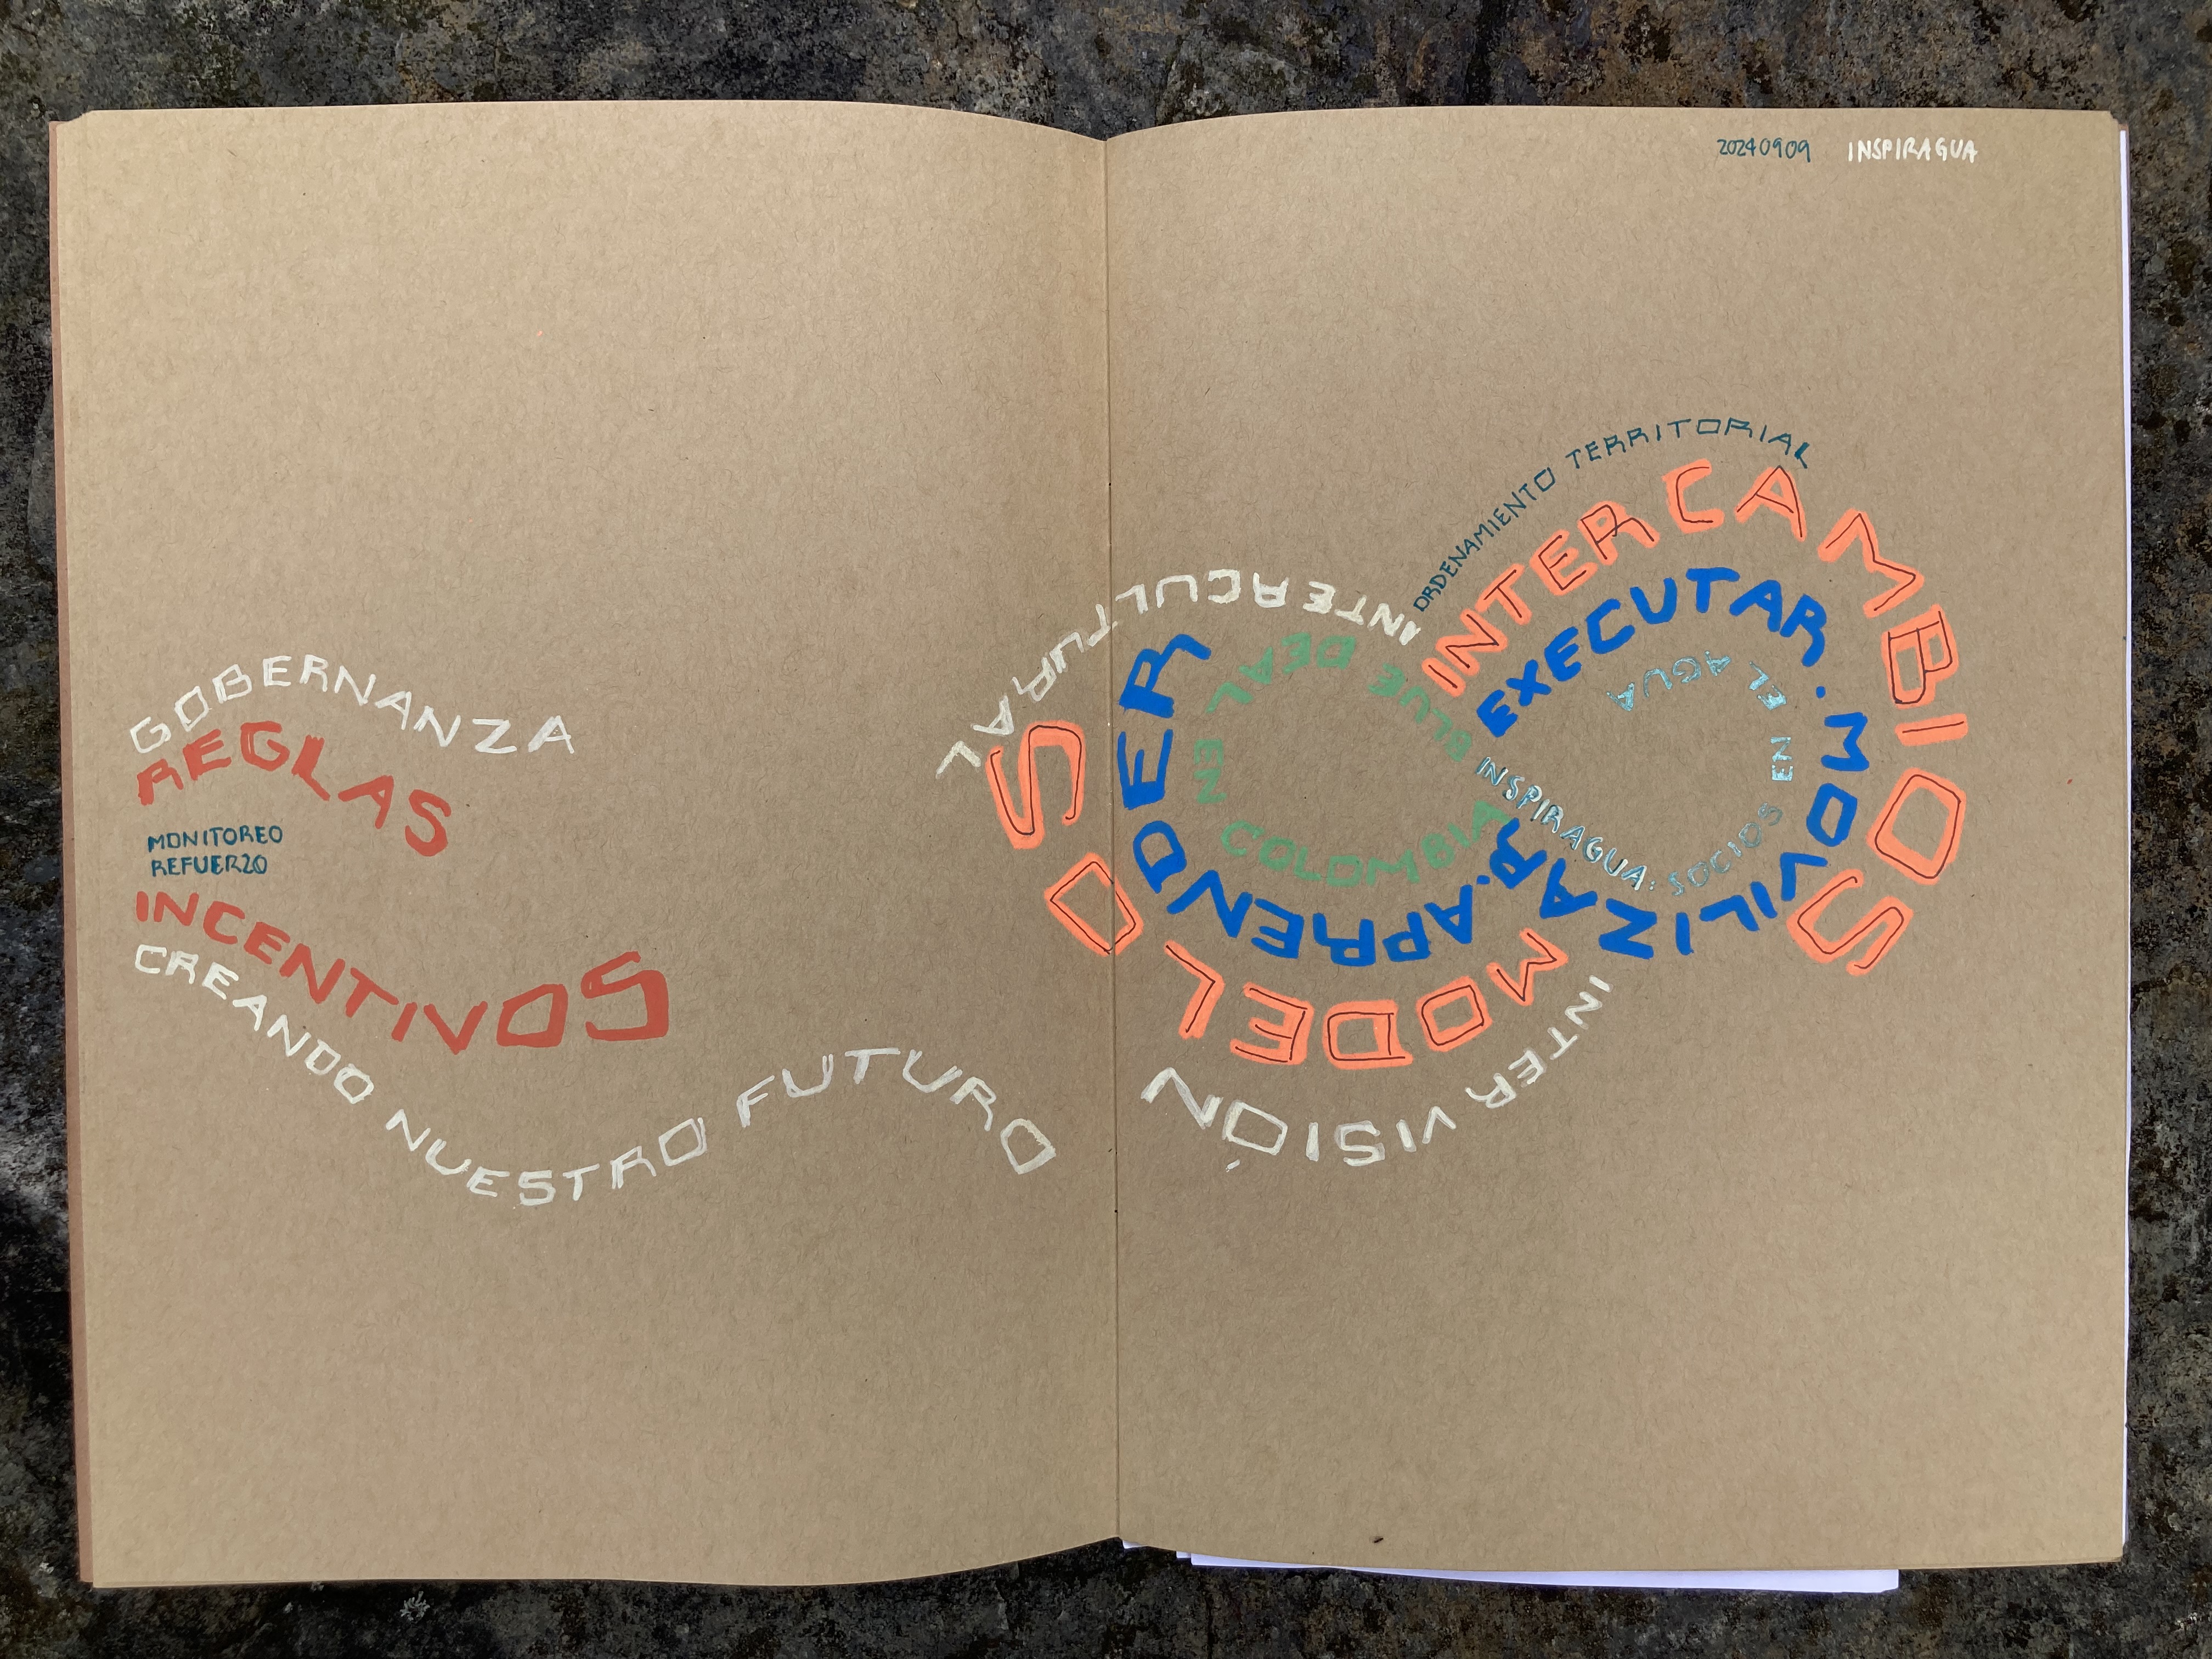 20240909 INSPIRAGUA
GOBERNANZA
REGLAS
MONITOREO
REFUERZO
INCENTIVOS
CREANDO NUESTRO FUTURO
ORDENAMIENTO TERRITORIAL
INTERCAMBIOS
EXECUTAR. MOVILIZAR. APRENDER
INTERCULTURAL
BLUE DEAL EN COLOMBIA
INSPIRAGUA: SOCIOS EN EL AGUA
MODELOS
INTER VISIÓN